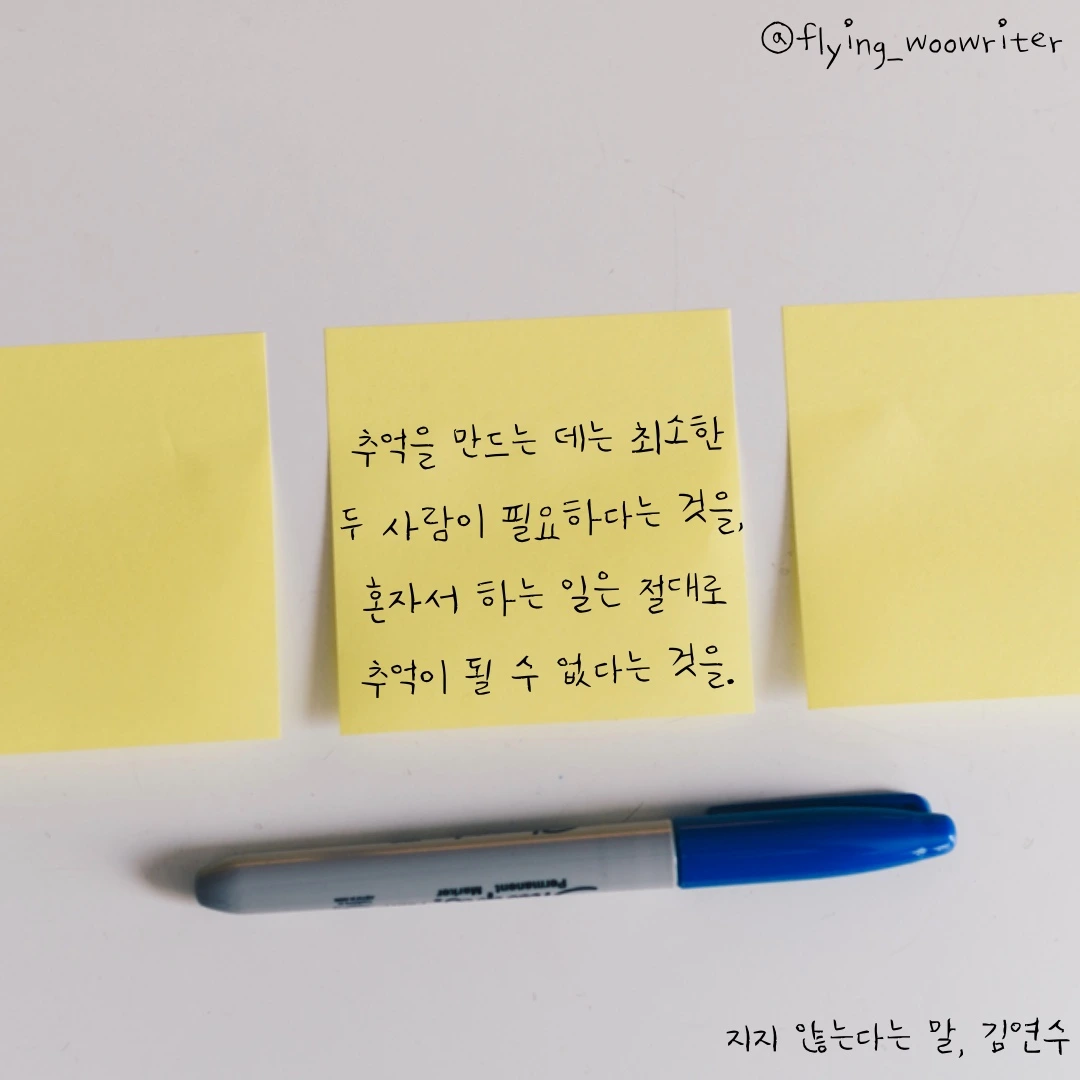 @flying_woowriter
추억을 만드는 데는 최소한
두 사람이 필요하다는 것을,
혼자서 하는 일은 절대로
추억이 될 수 없다는 것을.
Permanent Marker
지지 않는다는 말, 김연수